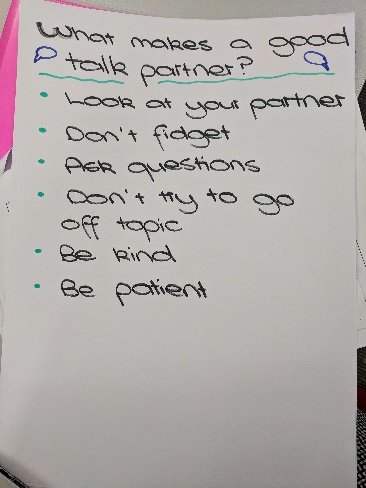 What makes a good
talk partner?
• Look at your partner
• Don't fidget
• Ask questions
• Don't try to go
off topic
• Be kind
• Be patient